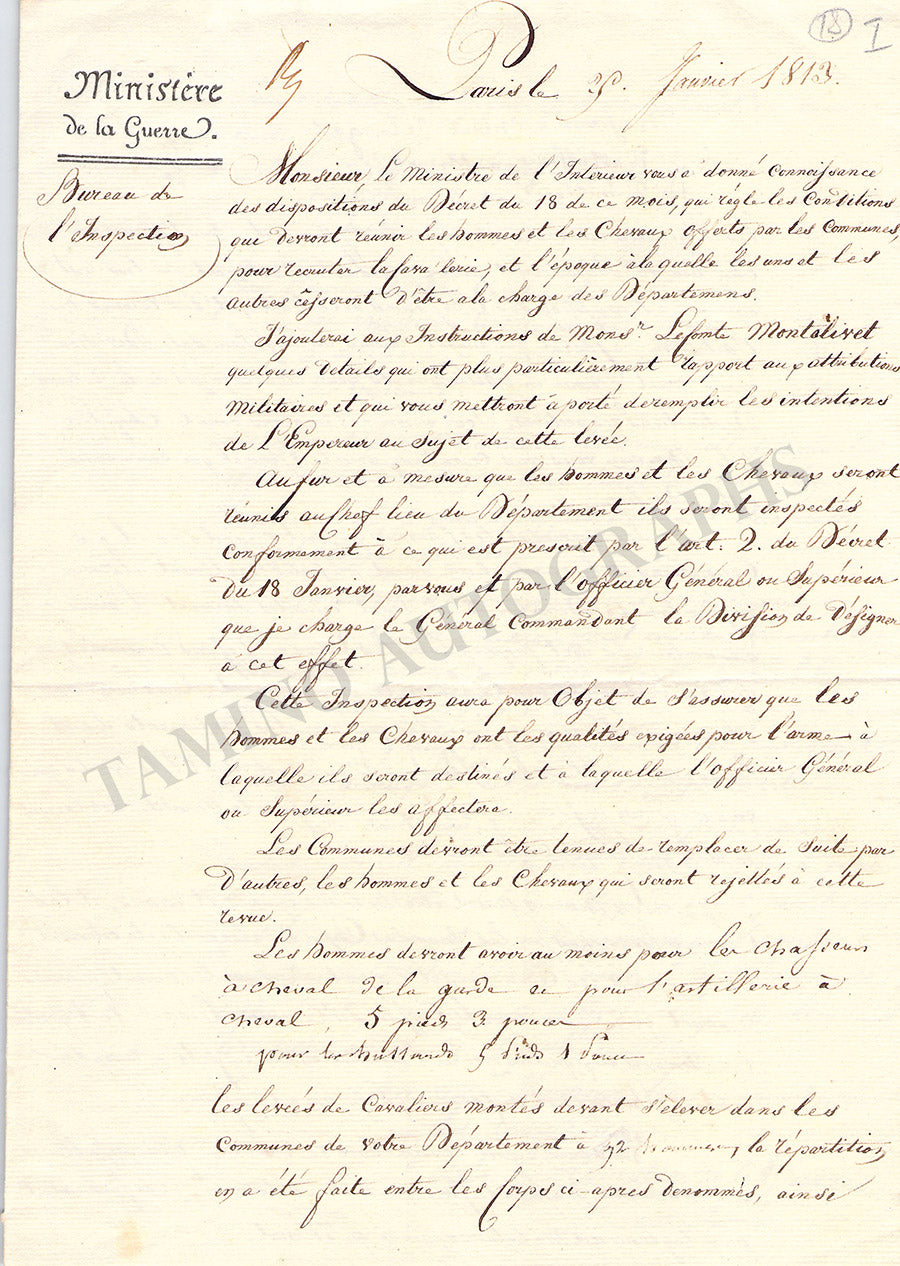 18 I
Ministère
de la Guerre.
Paris le 25. Janvier 1813.
Bureau de
l'Inspection
Monsieur, Le Ministre de l'Intérieur vous a donné connoissance
des dispositions du Décret du 18 de ce mois, qui régle les Conditions
qui devront réunir les hommes et les Chevaux offerts par les Communes,
pour recruter la Cavalerie, et l'époque à laquelle les uns et les
autres cesseront d'être a la charge des Départemens.
J'ajouterai aux Instructions de Monsr. Le Comte Montalivet
quelques détails qui ont plus particulièrement rapport aux attributions
Militaires et qui vous mettront à porté de remplir les intentions
de L'Empereur au Sujet de cette levée.
Au fur et à mesure que les hommes et les Chevaux seront
réunis au Chef lieu du Département ils seront inspectés
conformément à ce qui est prescrit par l'art: 2. du Décret
du 18 Janvier, par vous et par l'officier Général ou Supérieur
que je charge le Général Commandant la Division de Désigner
à cet effet.
Cette Inspection aura pour Objet de S'assurer que les
hommes et les Chevaux ont les qualités exigées pour l'arme à
laquelle ils seront destinés et à laquelle l'officier Général
ou Supérieur les affectera.
Les Communes devront être tenues de remplacer de Suite par
d'autres, les hommes et les Chevaux qui seront rejettés à cette
revue.
Les hommes devront avoir au moins pour les chasseurs
à cheval de la garde et pour l'artillerie à
cheval, 5 pieds 3 pouces
pour les hussards 5 pieds 1 pouce
les levées de Cavaliers montés devant s'élever dans les
Communes de votre Département à 52 hommes, la répartition
en a été faite entre les Corps ci-apres denommés, ainsi
TAMINO AUTOGRAPHS